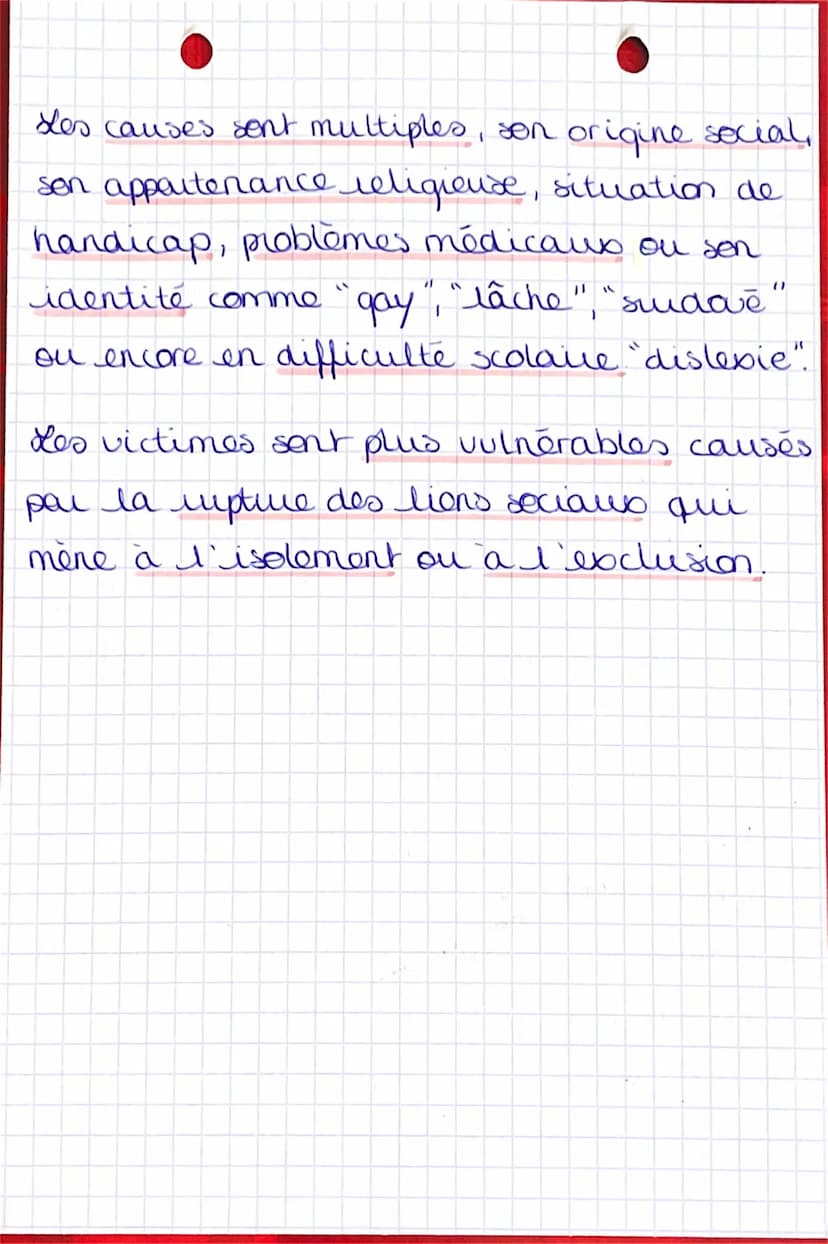 Les causes sont multiples, son origine social,
son appartenance religieuse, situation de
handicap, problèmes médicaux ou son
identité comme "gay", "lâche", "surdoué"
ou encore en difficulté scolaire "dislexie".
Les victimes sont plus vulnérables causés
par la rupture des liens sociaux qui
mène à l'isolement ou à l'exclusion.